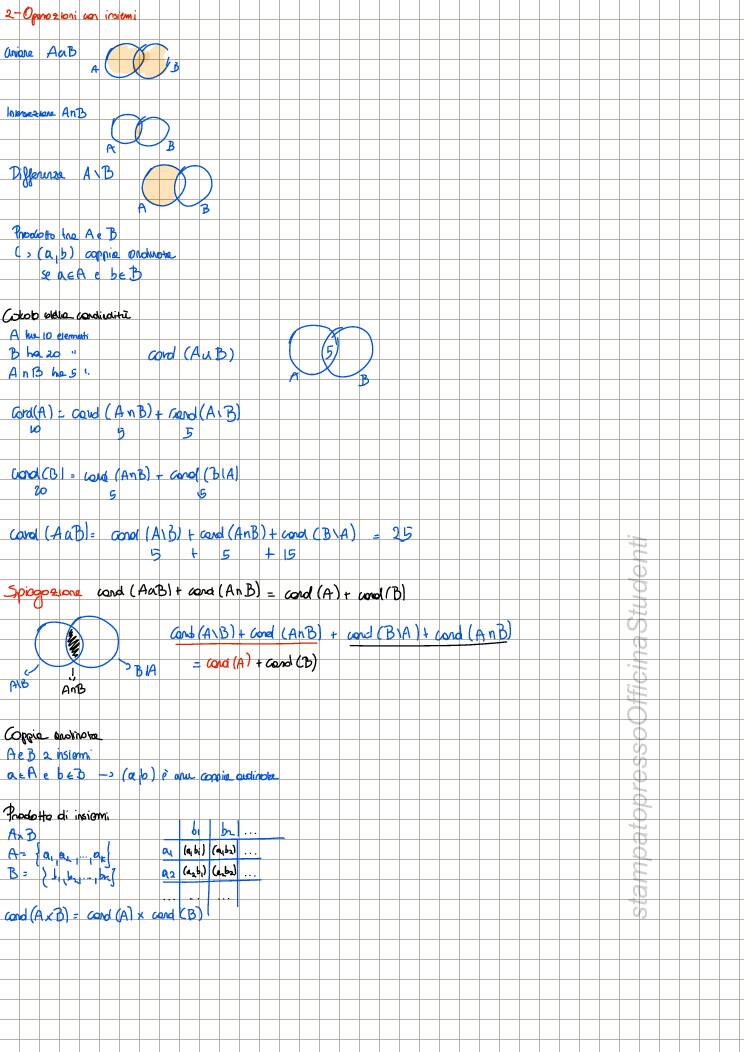 2-Operazioni con insiemi
unione A∪B
A B
Intersezione A∩B
A B
Differenza A\B
A B
Prodotto tra A e B
(a,b) coppia ordinata
se a∈A e b∈B
Calcolo della cardinalità
A ha 10 elementi
B ha 20 "
A∩B ha 5 "
card (A∪B)
5
A B
Card(A) = card (A∩B) + card(A\B)
10 5 5
card(B) = card (A∩B) + card (B\A)
20 5 15
card (A∪B) = card (A\B) + card (A∩B) + card (B\A) = 25
5 + 5 + 15
Spiegazione card (A∪B) + card (A∩B) = card (A) + card (B)
card (A\B) + card (A∩B) + card (B\A) + card (A∩B)
= card (A) + card (B)
A\B A∩B B\A
Coppia ordinata
A e B 2 insiemi
a∈A e b∈B → (a,b) è una coppia ordinata
Prodotto di insiemi
A×B
A = {a₁,a₂,...,aₖ}
B = {b₁,b₂,...,bₖ}
b₁ b₂ ...
a₁ (a₁b₁) (a₁b₂) ...
a₂ (a₂b₁) (a₂b₂) ...
... ... ...
card (A×B) = card (A) × card (B)
stampatopressoOfficinaStudenti